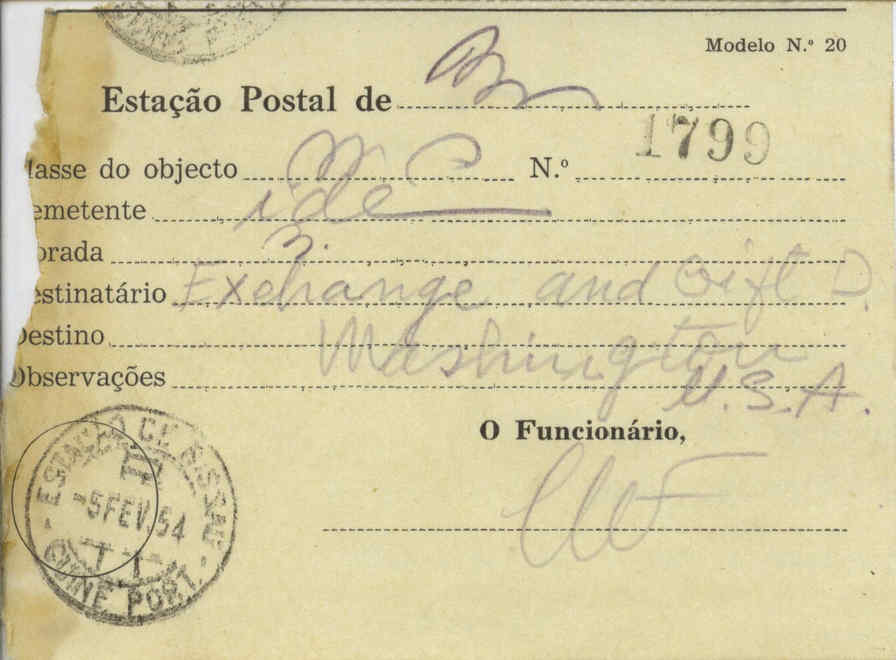 Modelo N.º 20
Estação Postal de
lasse do objecto N.º 1799
emetente
orada
estinatário Exchange and Gift D.
Destino Washington
Observações U.S.A.
O Funcionário,
ESTAÇÃO DE BISSAU
-5 FEV. 54
GUINÉ PORT.